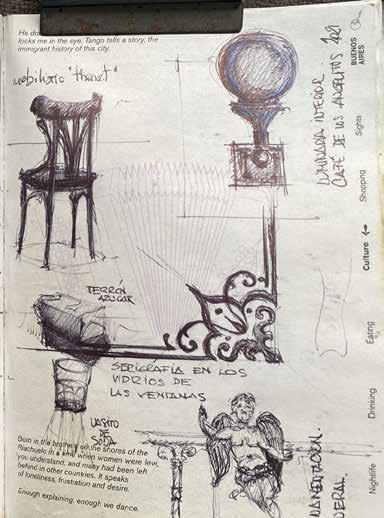 He
locks me in the eye. Tango tells a story, the
immigrant history of this city.
mobiliario "thonet"
TERRÓN
AZUCAR
SERIGRAFÍA EN LOS
VIDRIOS DE
LAS VENTANAS
VASITO
DE
SODA
Born in the brothels on the shores of the
Riachuelo in a time when women were few,
you understand, and many had been left
behind in other countries. It speaks
of loneliness, frustration and desire.
Enough explaining, enough we dance.
LUMINARIA INTERIOR
CAFÉ DE LOS ANGELITOS
BUENOS
AIRES
Sights
Shopping
Culture ←
Eating
Drinking
Nightlife